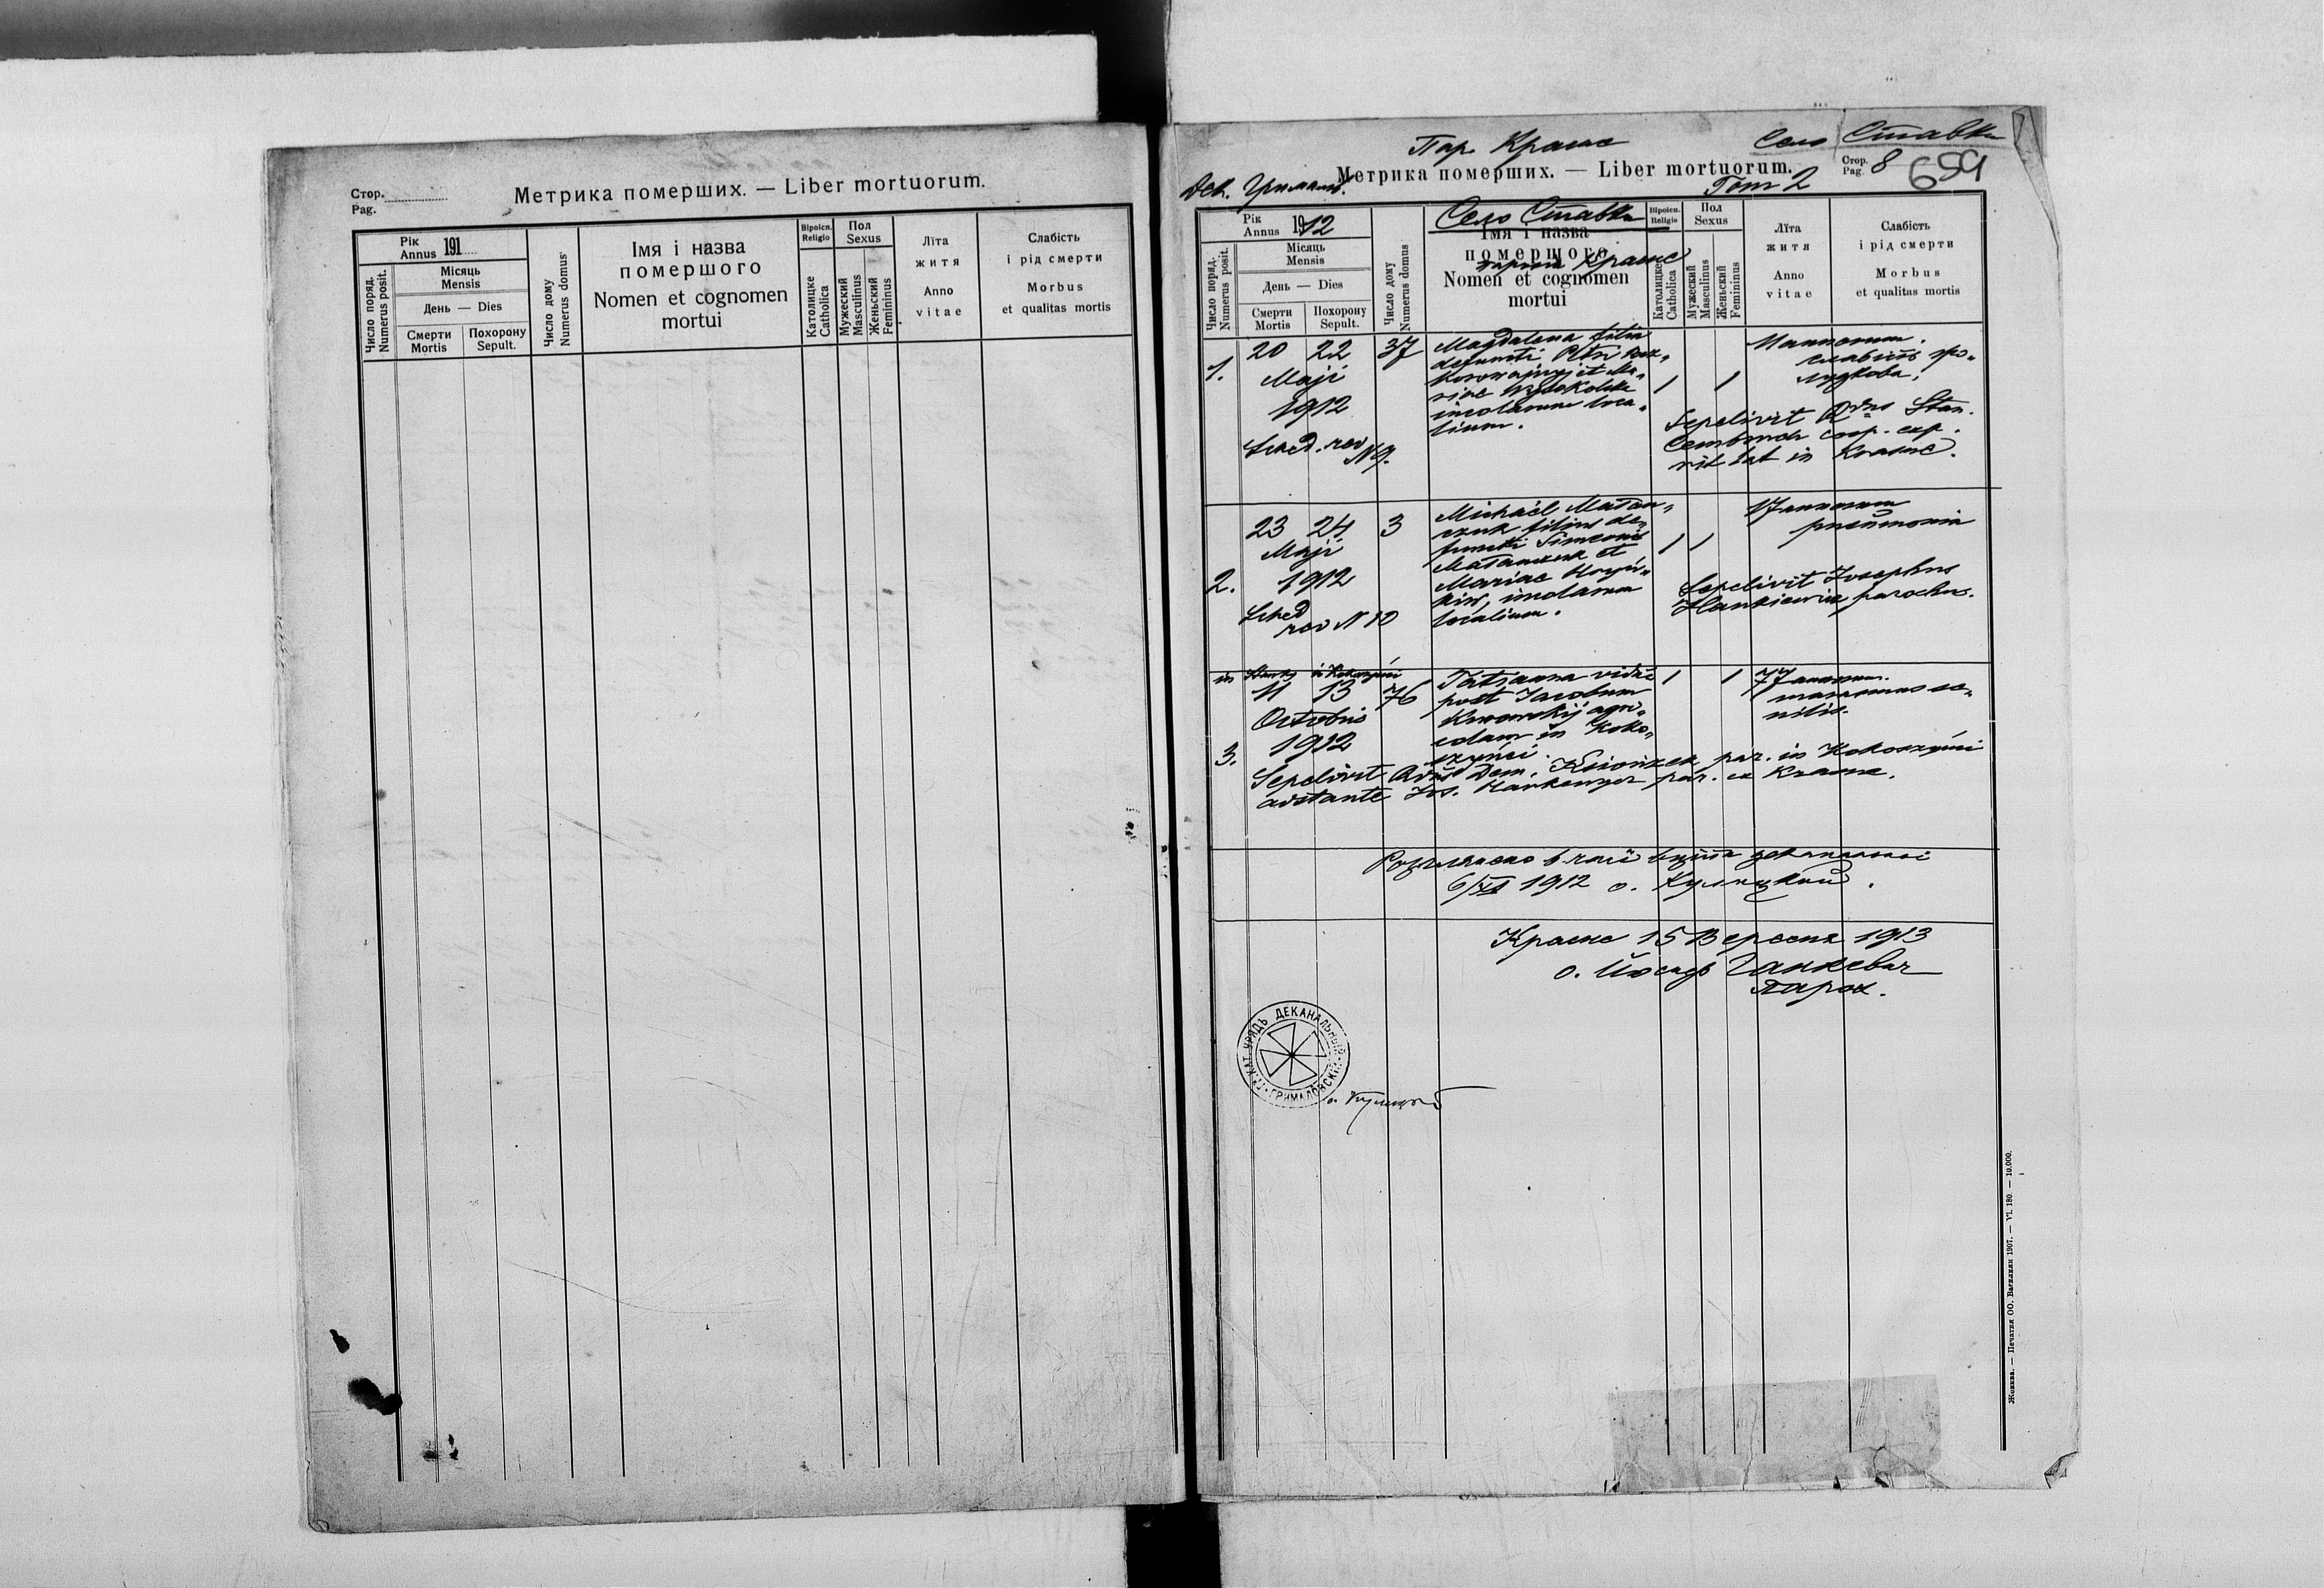 Стор.
Pag.
Метрика померших. — Liber mortuorum.
Рік
Annus 191
Число поряд.
Numerus posit.
Місяць
Mensis
День — Dies
Смерти
Mortis
Похорону
Sepult.
Число дому
Numerus domus
Імя і назва
помершого
Nomen et cognomen
mortui
Віроісп.
Religio
Католицке
Catholica
Пол
Sexus
Мужеский
Masculinus
Женьский
Femininus
Лїта
житя
Anno
vitae
Слабість
і рід смерти
Morbus
et qualitas mortis
Пар. Красне
Село Ставки
Дек. Грималів.
Метрика померших. — Liber mortuorum.
Том 2
Стор.
Pag. 8
659
Рік
Annus 1912
Число поряд.
Numerus posit.
Місяць
Mensis
День — Dies
Смерти
Mortis
Похорону
Sepult.
Число дому
Numerus domus
Село Ставки
Імя і назва
помершого
Красне
Nomen et cognomen
mortui
Віроісп.
Religio
Католицке
Catholica
Пол
Sexus
Мужеский
Masculinus
Женьский
Femininus
Лїта
житя
Anno
vitae
Слабість
і рід смерти
Morbus
et qualitas mortis
1.
20 22 37
Maji
1912
Sched. rev
N 9.
Magdalena filia
defuncti Petri
et Ma„
riae
incolarum loca„
lium.
1 1
annorum.
слабість
Sepelivit Rdus Stan.
coop. exp.
rit. lat in Krasne.
2.
23 24 3
Maji
1912
Sched
rev N 10
Michaël Matan„
czuk filius de„
functi Simeonis
Matanczuk et
Mariae
incolarum
localium.
1 1
17 annorum
pneumonia
Sepelivit Josephus
Hankiewicz parochus.
3.
in
11 13 76
Octobris
1912
Tatianna vidua
post Jacobum
agri„
colam in Koko„
szyńci.
1 1
77 annorum.
marasmus se„
nilis.
Sepelivit Rdus Dem. par. in Kokoszyńci
adstante Jos. par. ex Krasne.
6/XI 1912 о. Кулицкий.
Красне 15 Вересня 1913
о. Йосиф Ганкевич
парох.
ГР. КАТ. УРЯДЪ ДЕКАНАЛЬНЫЙ ГРИМАЛОВСКІЙ
о. Кулицкий
Жовква. — Печатня ОО. Василиян 1907. — VI. 180. — 10.000.